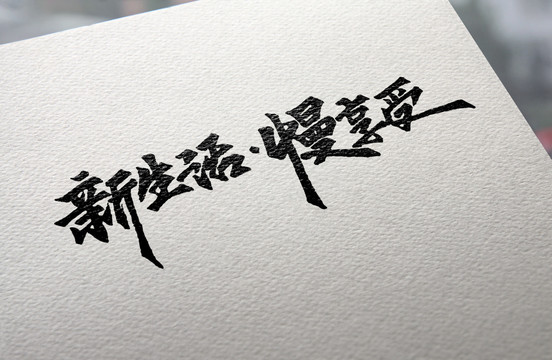 新生活·慢享受